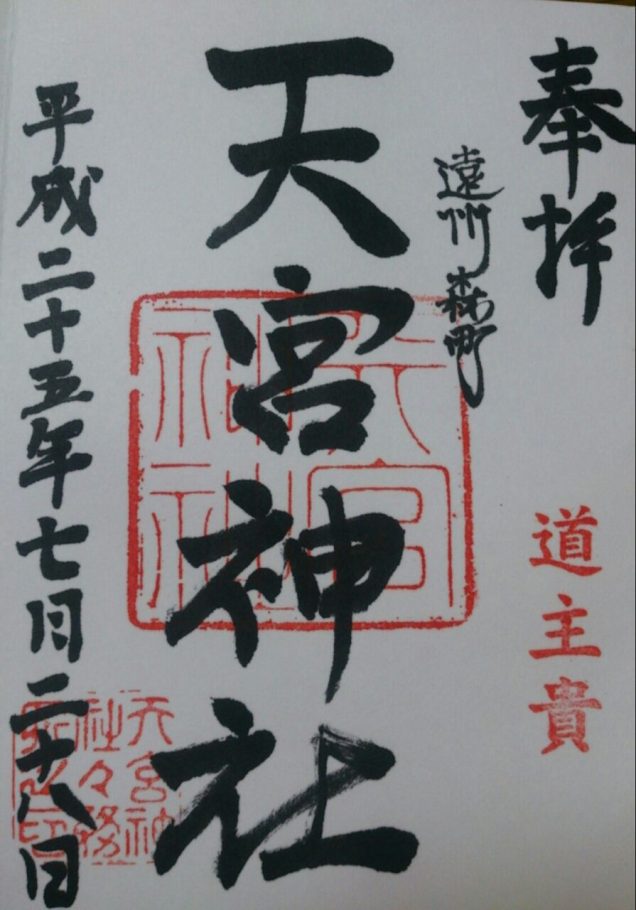 奉拝
道主貴
遠州森町
天宮神社
天宮神社
平成二十五年七月二十八日
天宮神
社々務
所之印